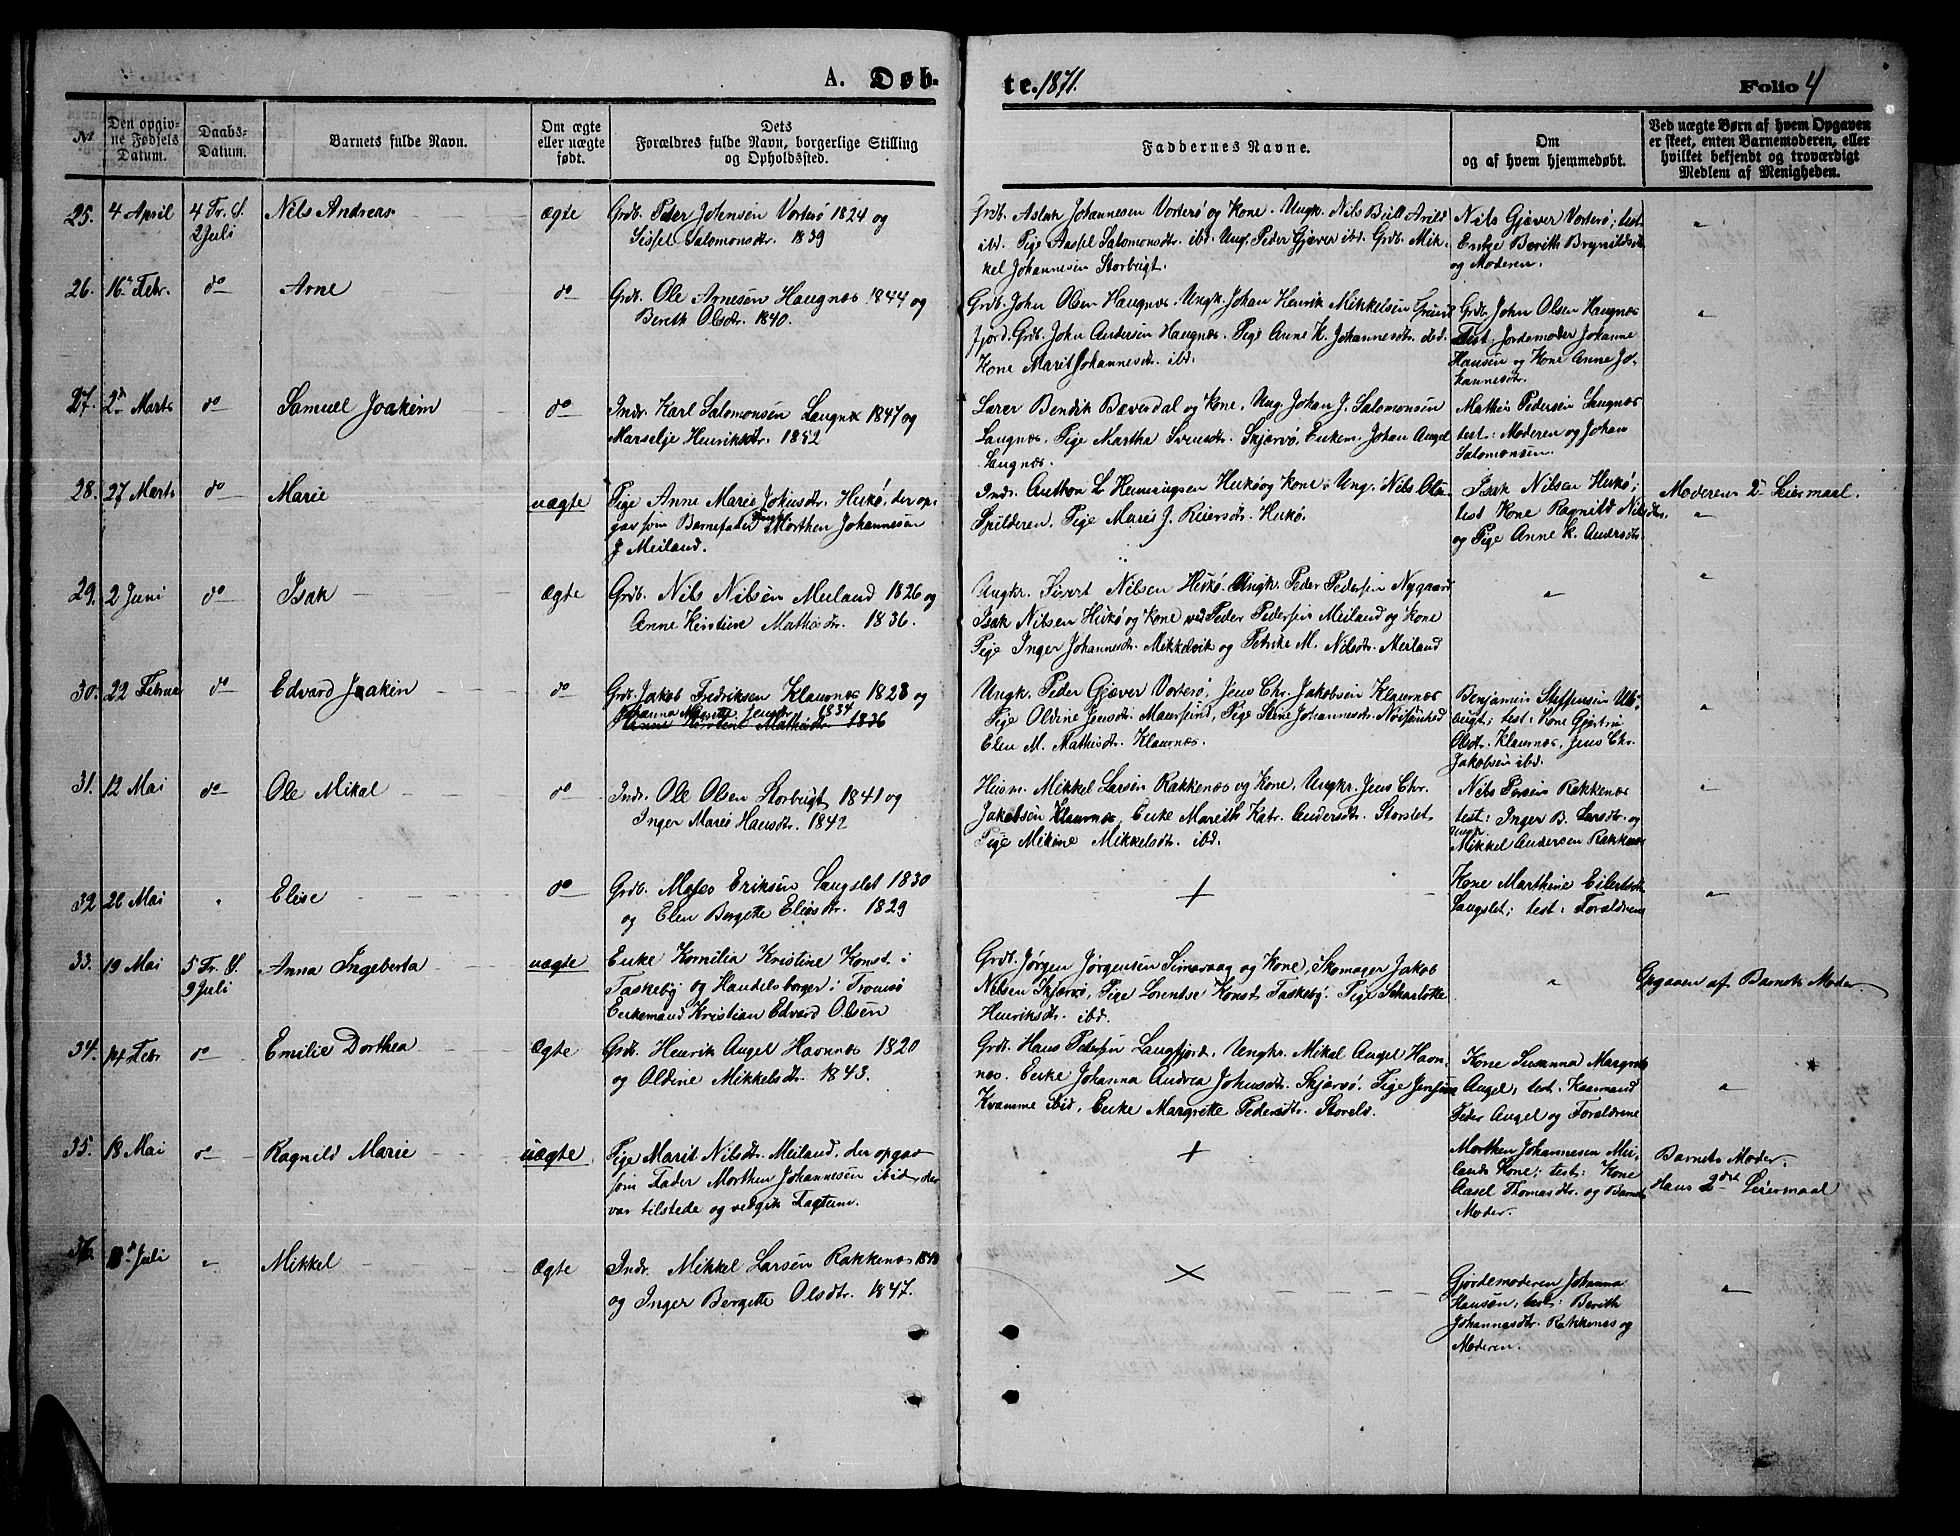 A. Døb-
te. 1871.
Folio 4
No
Den opgiv-
ne Fødsels
Datum.
Daabs-
Datum.
Barnets fulde Navn.
Om ægte
eller uægte
født.
Dets
Forældres fulde Navn, borgerlige Stilling
og Opholdssted.
Faddernes Navne.
Om
og af hvem hjemmedøbt.
Ved uægte Børn af hvem Opgaven
er skeet, enten Barnemoderen, eller
hvilket bekjendt og troværdigt
Medlem af Menigheden.
25.
4 April
4 Tr. S.
2 Juli
Nils Andreas
Ægte
Grdb. Peder Johensen Vorterø 1824 og
Sissel Salomonsdtr. 1839
Grdb. Aslak Johannesen Vorterø og Kone. Ungk. Nils Bull Arild
ibd. Pige Aassel Salomonsdtr. ibd. Ungk. Peder Gjæver ibd. Grdb. Mik-
kel Johannesen Storbugt.
Nils Gjæver Vorterø; test.
Enke Berith Brynildsdt
og Moderen.
"
26.
16 Febr.
do
Arne
do
Grdb. Ole Arnesen Haugnæs 1844 og
Bereth Olsdtr. 1840.
Grdb. John Olsen Haugnæs, Ungk. Johan Henrik Mikkelsen Grund
fjord. Grdb. John Andersen Haugnæs. Pige Anne K. Johannesdtr. ibd.
Kone Marit Johannesdtr. ibd.
Grdb. John Olsen Haugnæs
Test: Jordemoder Johanne
Hansen og Kone Anne Jo-
hannesdtr.
"
27.
2 Marts
do
Samuel Joakim
do
Indr. Karl Salomonsen Laugnæs 1847 og
Marselje Henriksdtr. 1852
Lærer Bendik Bæverdal og Kone, Ung. Johan J. Salomonsen
Laugnæs, Pige Martha Svensdtr. Skjærvø, Enkem. Johan Angel
Laugnæs.
Mathis Pedersen Laugnæs
test: Moderen og Johan
Salomonsen.
28.
27 Marts
do
Marie
uægte
Pige Anne Marie Johnsdtr. Hukø, der op-
gav som Barnefader Ungk. Morthen Johannesen
Meiland.
Indr. Anthon L Henningsen Hukø og Kone. Ung. Nils Ola-
Spilderen, Pige Marie J. Reiersdtr. Hukø.
Isak Nilsen Hukø;
test Kone Ragnild Nilsdtr.
og Pige Anne K. Andersdtr.
Moderens 2 Leiermaal.
"
29.
2 Juni
do
Isak
Ægte
Grdb. Nils Nilsen Meiland 1826 og
Anne Kirstine Mathisdtr. 1836.
Ungkr. Sivert Nilsen Hukø. Ungk. Peder Pedersen Nygaard
Isak Nilsen Hukø og Kone ved Peder Pedersen Meiland og Kone
Pige Inger Johannesdtr. Mikkelvik og Petrike M. Nilsdtr. Meiland
"
"
30.
22 Februar
do
Edvard Joakim
do
Grdb. Jakob Fredriksen Klauvnæs 1828 og
Johanna Margrette Jensdtr. 1834
Anne Kirstine Mathisdtr 1836
Ungk. Peder Gjæver Vorterø, Jens Chr. Jakobsen Klauvnæs
Pige Oldine Jensdtr. Maursund, Pige Stine Johannesdtr.
Elen M. Mathisdtr. Klauvnæs.
Benjamin Steffensen
bugt; test: Kone
Olsdtr. Klauvnæs, Jens Chr.
Jakobsen ibd.
"
31.
12 Mai
do
Ole Mikal
do
Indr. Ole Olsen Storbugt 1841 og
Inger Marie Hansdtr. 1842
Husm. Mikkel Larsen Rakkenæs og Kone, Ungkr. Jens Chr.
Jakobsen Klauvnæs, Enke Mareth Katr. Andersdtr. Storslet
Pige Mikine Mikkelsdtr. ibd.
Nils Persen Rakkenæs
test: Inger B. Larsdtr. og
Ungk. Mikkel Andersen Rakkenæs
"
32
26 Mai
"
Elise
do
Grdb. Moses Eriksen Langslet 1830
og Elen Bergette Eliasdtr. 1829
+
Kone Marthine Eilertsdtr
Langslet; test: Forældrene
"
33.
19 Mai
5 Tr. S.
9 Juli
Anna Ingeberta
uægte
Enke Kornilia Kristine Konst i
Taskeby og Handelsborger i Tromsø
Enkemand Kristian Edvard Olsen
Grdb. Jørgen Jørgensen Simavaag og Kone, Skomager Jakob
Nilsen Skjærvø, Pige Lorentse Konst Taskeby. Pige Scharlotte
Henriksdtr. ibd.
"
Opgaven af Barnets Moder.
34.
14 Febr
do
Emilie Dorthea
Ægte
Grdb. Henrik Angel Havnnæs 1820
og Oldine Mikkelsdtr. 1843.
Grdb. Hans Pedersen Langfjord, Ungkr. Mikal Angel Havn-
næs. Enke Johanna Andrea Johnsdtr. Skjærvø. Pige Jensine
Kvamme ibid, Enke Margrette Pedersdtr. Storeld.
Kone Susanna Margreta
Angel, test. Kaarmand
Peder Angel og Forældrene
"
35.
18 Mai
do
Ragnild Marie
uægte
Pige Marit Nilsdtr. Meiland, der opgav
som Fader Morthen Johannesen ibid, der
var tilstede og vedgik Factum.
+
Morthen Johannesen Mei-
lands Kone; test: Kone
Aasel Thomasdtr. og Barnets
Moder.
Barnets Moder.
Hans 2det Leiermaal
36.
Juli
"
Mikkel
Ægte
Indr. Mikkel Larsen Rakkenæs 1848
og Inger Bergette Olsdtr. 1847.
×
Gjordemoderen Johanna
Hansen, test: Berith
Johannesdtr. Rakkenæs og
Moderen.
"